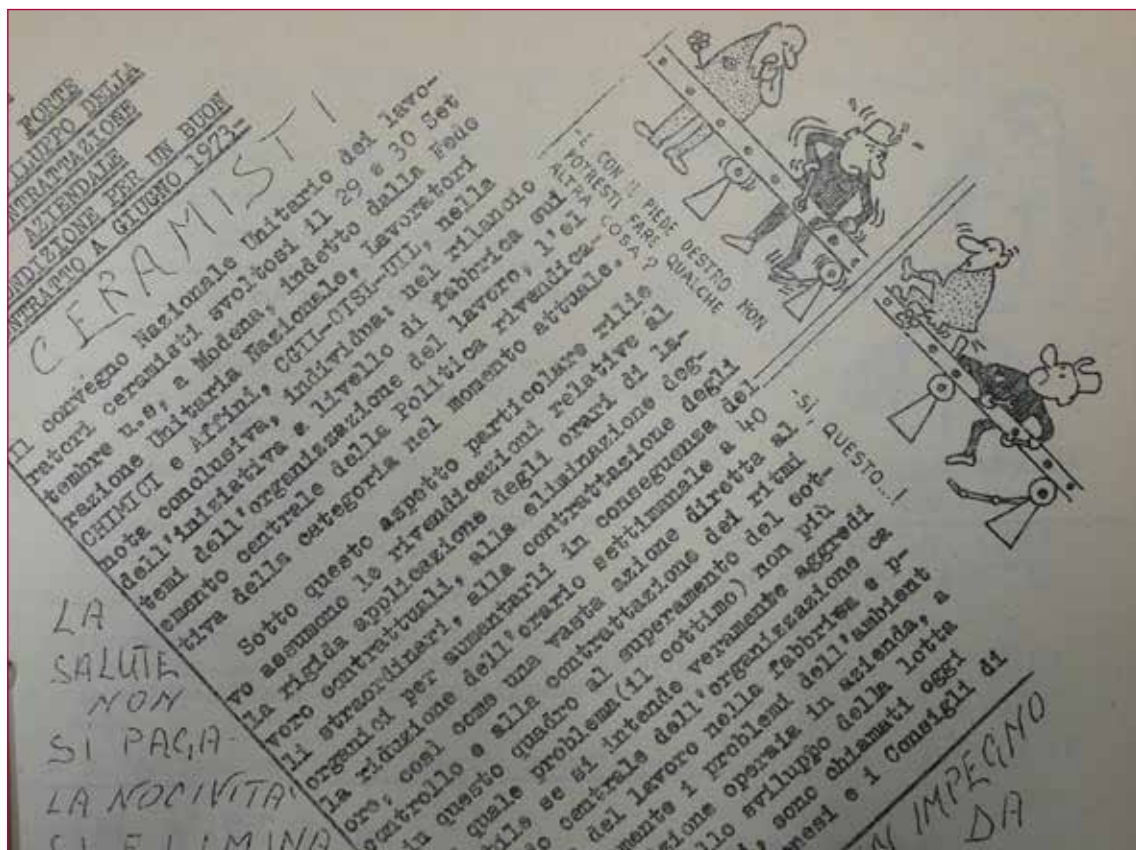 FORTE
ILUPPO DELLA
NTRATTAZIONE
AZIENDALE
NDIZIONE PER UN BUON
NTRATTO A GIUGNO 1973-
CERAMISTI
Il convegno Nazionale Unitario dei lavo-
ratori ceramisti svoltosi il 29 e 30 Set
tembre u.s, a Modena, indetto dalla Fede
razione Unitaria Nazionale, Lavoratori
CHIMICI e Affini, CGIL-CISL-UIL, nella
nota conclusiva, individua: nel rilancio
dell'iniziativa a livello di fabbrica sui
temi dell'organizzazione del lavoro, l'el
emento centrale della Politica rivendica-
tiva della categoria nel momento attuale.
Sotto questo aspetto particolare rilie
vo assumono le rivendicazioni relative al
la rigida applicazione degli orari di la-
voro contrattuali, alla eliminazione deg-
li straordinari, alla contrattazione degli
organici per aumentarli in conseguenza del
la riduzione dell'orario settimanale a 40
ore, così come una vasta azione diretta al
controllo e alla contrattazione dei ritmi
in questo quadro al superamento del cot-
quale problema(il cottimo) non più
bile se si intende veramente aggredi
o centrale dell'organizzazione ca
del lavoro nella fabbrica e p-
mente i problemi dell'ambient
azione operaia in azienda, a
llo sviluppo della lotta
i, sono chiamati oggi
nesi e i Consigli di
-E CON IL PIEDE DESTRO NON
POTRESTI FARE QUALCHE
ALTRA COSA?
-SÌ, QUESTO...!
LA
SALUTE
NON
SI PAGA-
LA NOCIVITA'
SI ELIMINA
N IMPEGNO
DA